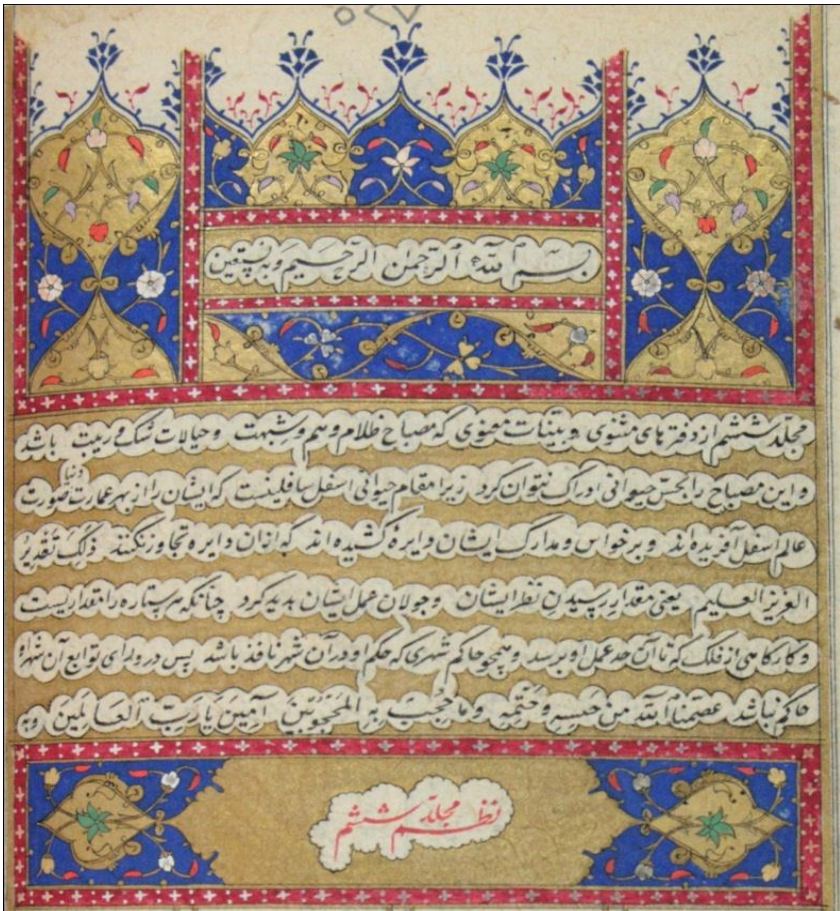 بسم الله الرحمن الرحیم وبه نستعین
مجلد ششم از دفترهای مثنوی و بینات معنوی که مصباح ظلام وهم و شبهت و خیالات شک و ریبت باشد
و این مصباح را بحس حیوانی ادراک نتوان کرد زیرا مقام حیوانی اسفل سافلینست که ایشان را از بهر عمارت صورت دنیا
عالم اسفل آفریده‌اند و بر حواس و مدارک ایشان دایره کشیده‌اند که از آن دایره تجاوز نکنند ذلک تقدیر
العزیز العلیم یعنی مقدار رسیدن نظر ایشان و جولان عمل ایشان پدید کرد چنانکه هر ستاره را مقداریست
و کارگاهی از فلک که تا آن حد عمل او برسد و همچو حاکم شهری که حکم او در آن شهر نافذ باشد پس در ورای توابع آن شهر او
حاکم نباشد عصمنا الله من حبسه و ختمه وما حجب به المحجوبین آمین یا رب العالمین وبه
نظم مجلد ششم